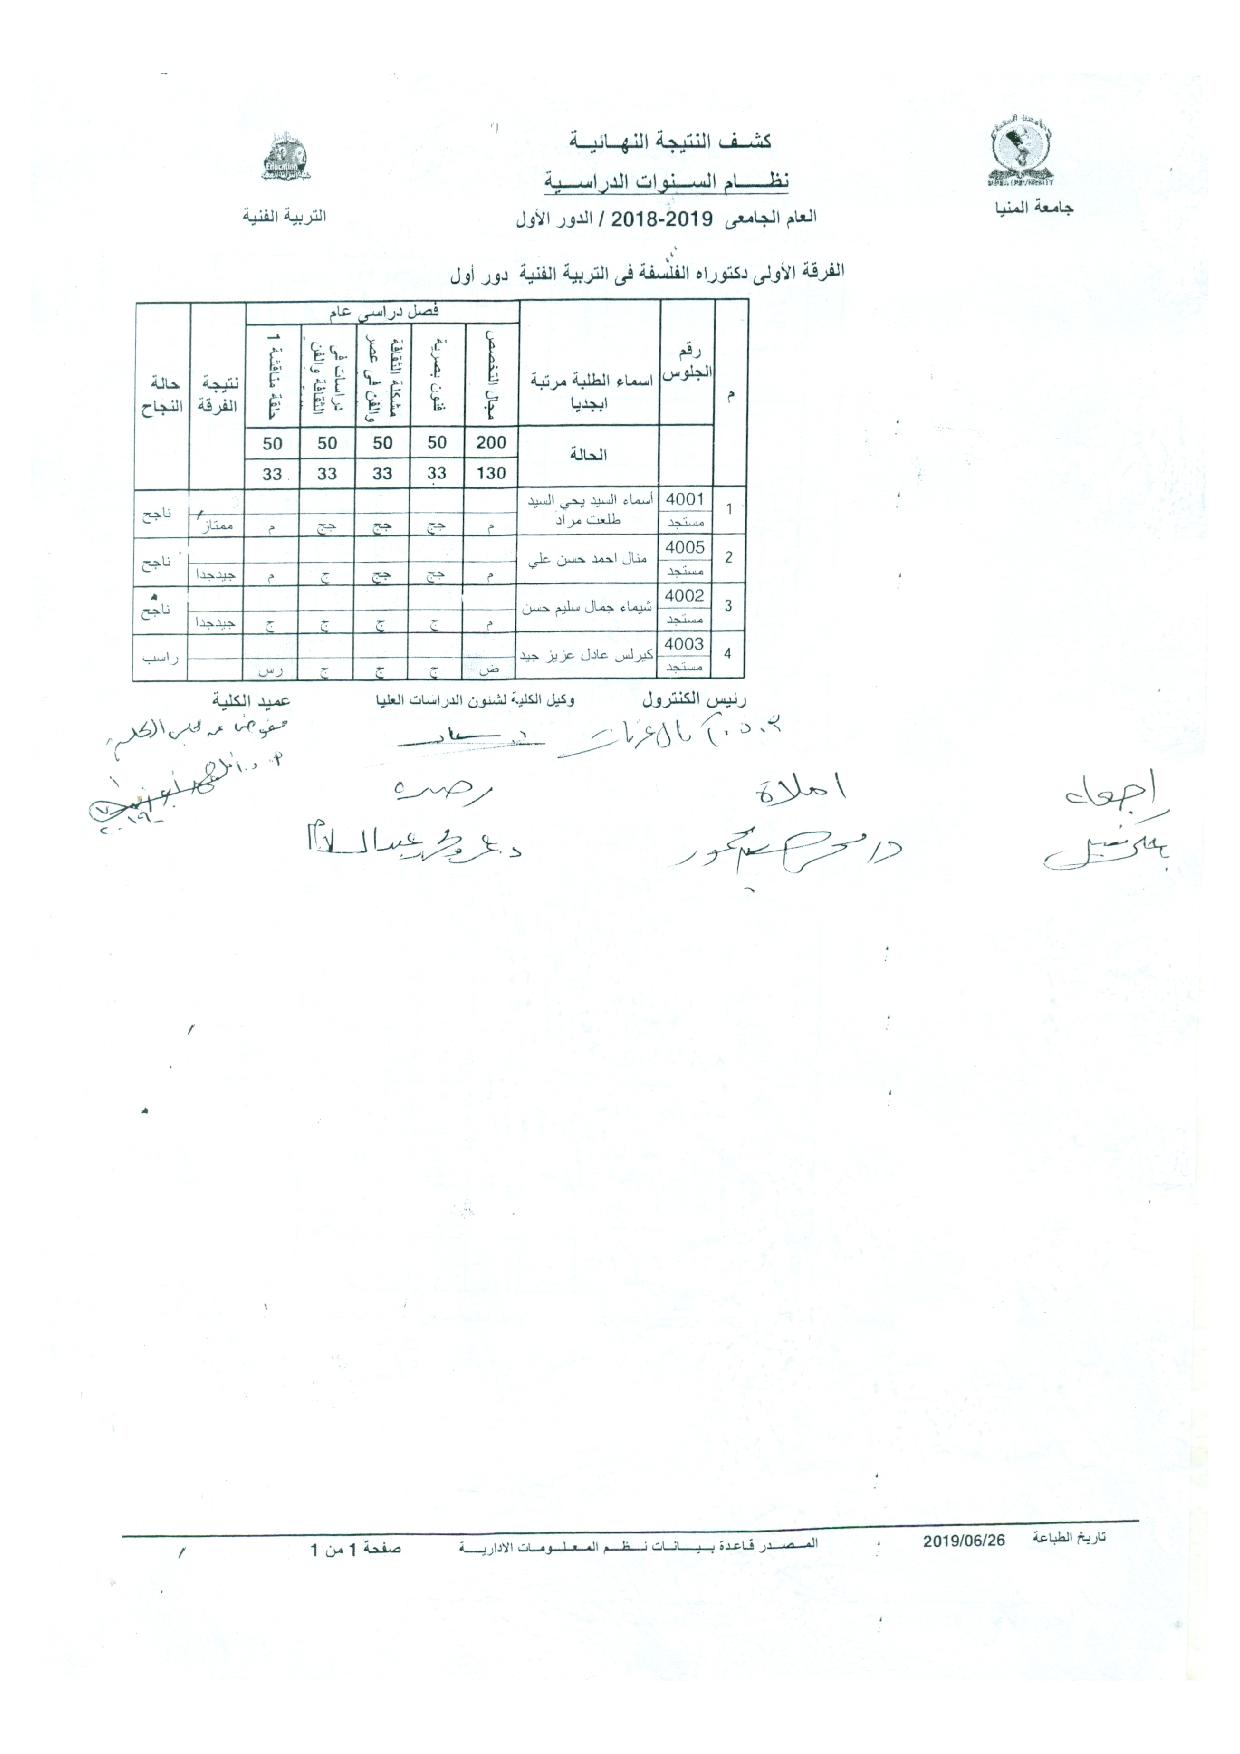 كشف النتيجة النهائية
نظام السنوات الدراسية
جامعة المنيا
العام الجامعى 2018-2019 / الدور الأول
التربية الفنية
الفرقة الأولى دكتوراه الفلسفة فى التربية الفنية دور أول
م
رقم الجلوس
اسماء الطلبة مرتبة ابجديا
فصل دراسي عام
نتيجة الفرقة
حالة النجاح
مجال التخصص
فنون بصرية
مشكلة الثقافة والفن فى عصر
دراسات فى الثقافة والفن
حلقة مناقشة 1
الحالة
200 50 50 50 50
130 33 33 33 33
1 4001 أسماء السيد يحي السيد طلعت مراد ناجح
مستجد م جج جج جج م ممتاز
2 4005 منال احمد حسن علي ناجح
مستجد م جج جج ج م جيدجدا
3 4002 شيماء جمال سليم حسن ناجح
مستجد م ج ج ج ج جيدجدا
4 4003 كيرلس عادل عزيز جيد راسب
مستجد ض ج ج ج رس
رئيس الكنترول وكيل الكلية لشئون الدراسات العليا عميد الكلية
املاة
رصده
تاريخ الطباعة 2019/06/26 المصدر قاعدة بيانات نظم المعلومات الادارية صفحة 1 من 1